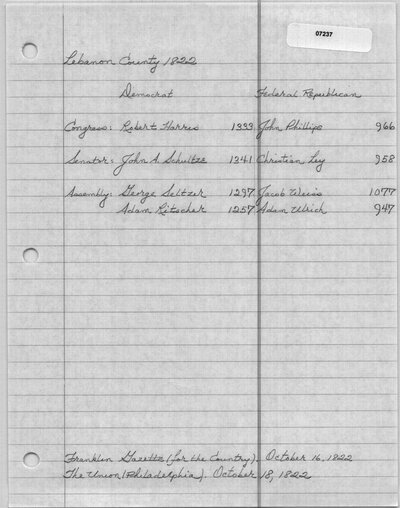 07237
Lebanon County 1822
Democrat Federal Republican
Congress: Robert Harris 1333 John Phillips 966
Senator: John A. Schultze 1341 Christian Ley 958
Assembly: George Seltzer 1297 Jacob Weiss 1077
Adam Ritscher 1257 Adam Ulrich 947
Franklin Gazette (for the Country). October 16, 1822
The Union (Philadelphia). October 18, 1822